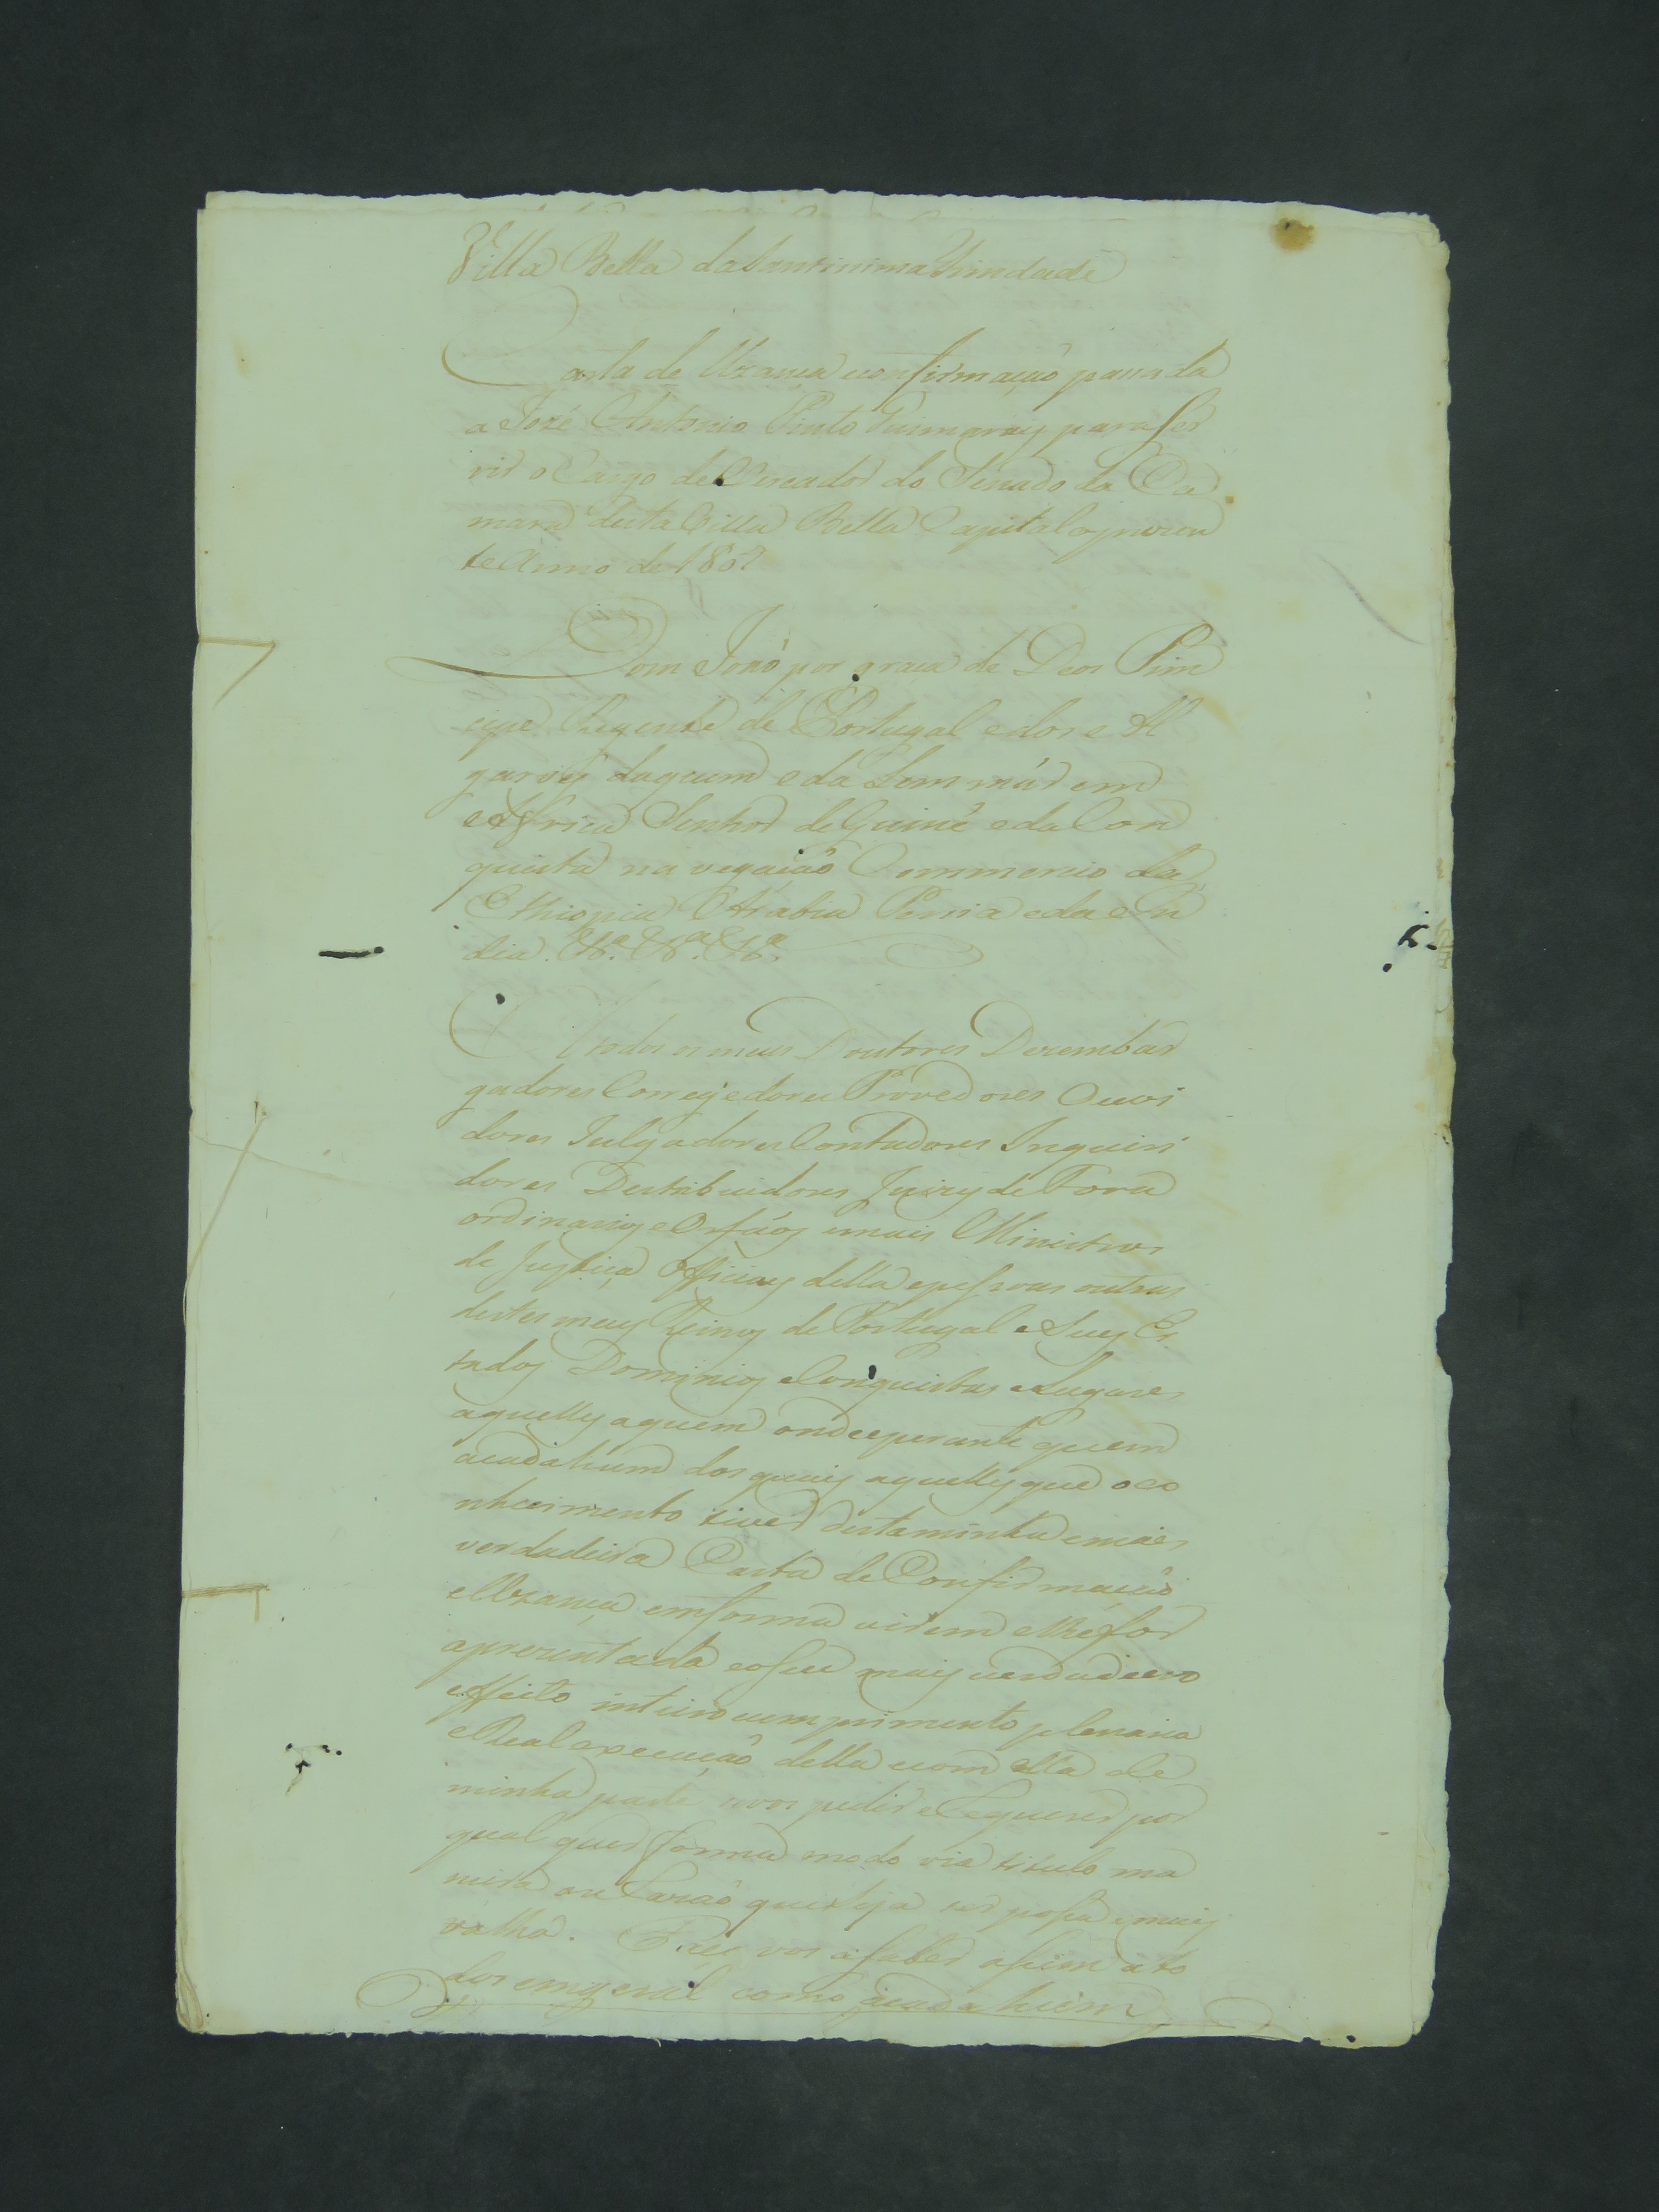 Villa Bella da Santissima Trindade
Carta de Uzança econfirmação passada
a José Antonio Pinto Guimaraes para ser
vir o Cargo de Vereador do Senado da Ca
mara desta Villa Bella Capital oprezen
te Anno de 180
Dom João por graca de Deos Prin
cipe Regente de Portugal edos Al
garves daquem e da Lem már em
Africa Senhor de Guiné e da Con
quista navegaçaõ Commercio da
Ethiopia Arabia Persia eda In
dia. &ª. &ª. &ª.
A todos os meus Doutores Dezembar
gadores Corregedores Provedores Ouvi
dores Julgadores Contadores Inqueri
dores Destribuidores Juizes de Fora
ordinarios e Orfaõs emais Ministros
de Justiça Officiaes della epessoas outras
destes meus Reinos de Portugal e Seus Es
tados Dominios e Conquistas e Lugares
aquelles aquem onde eperante quem
acada hum dos quais aquelles que o co
nhecimento tiver desta minha emais
verdadeira Carta de Confirmaçaõ
e Uzança em forma virem e lhe for
aprezentada eoseu mais verdadeiro
effeito inteiro cumprimento plenaria
e Real execuçaõ della ecom ella de
minha parte vos pedir e Requerer por
qual quer forma modo via titulo ma
neira ou Razaõ que seja ser possa emais
valha. Faço vos a saber assim a to
dos em geral como acada hum